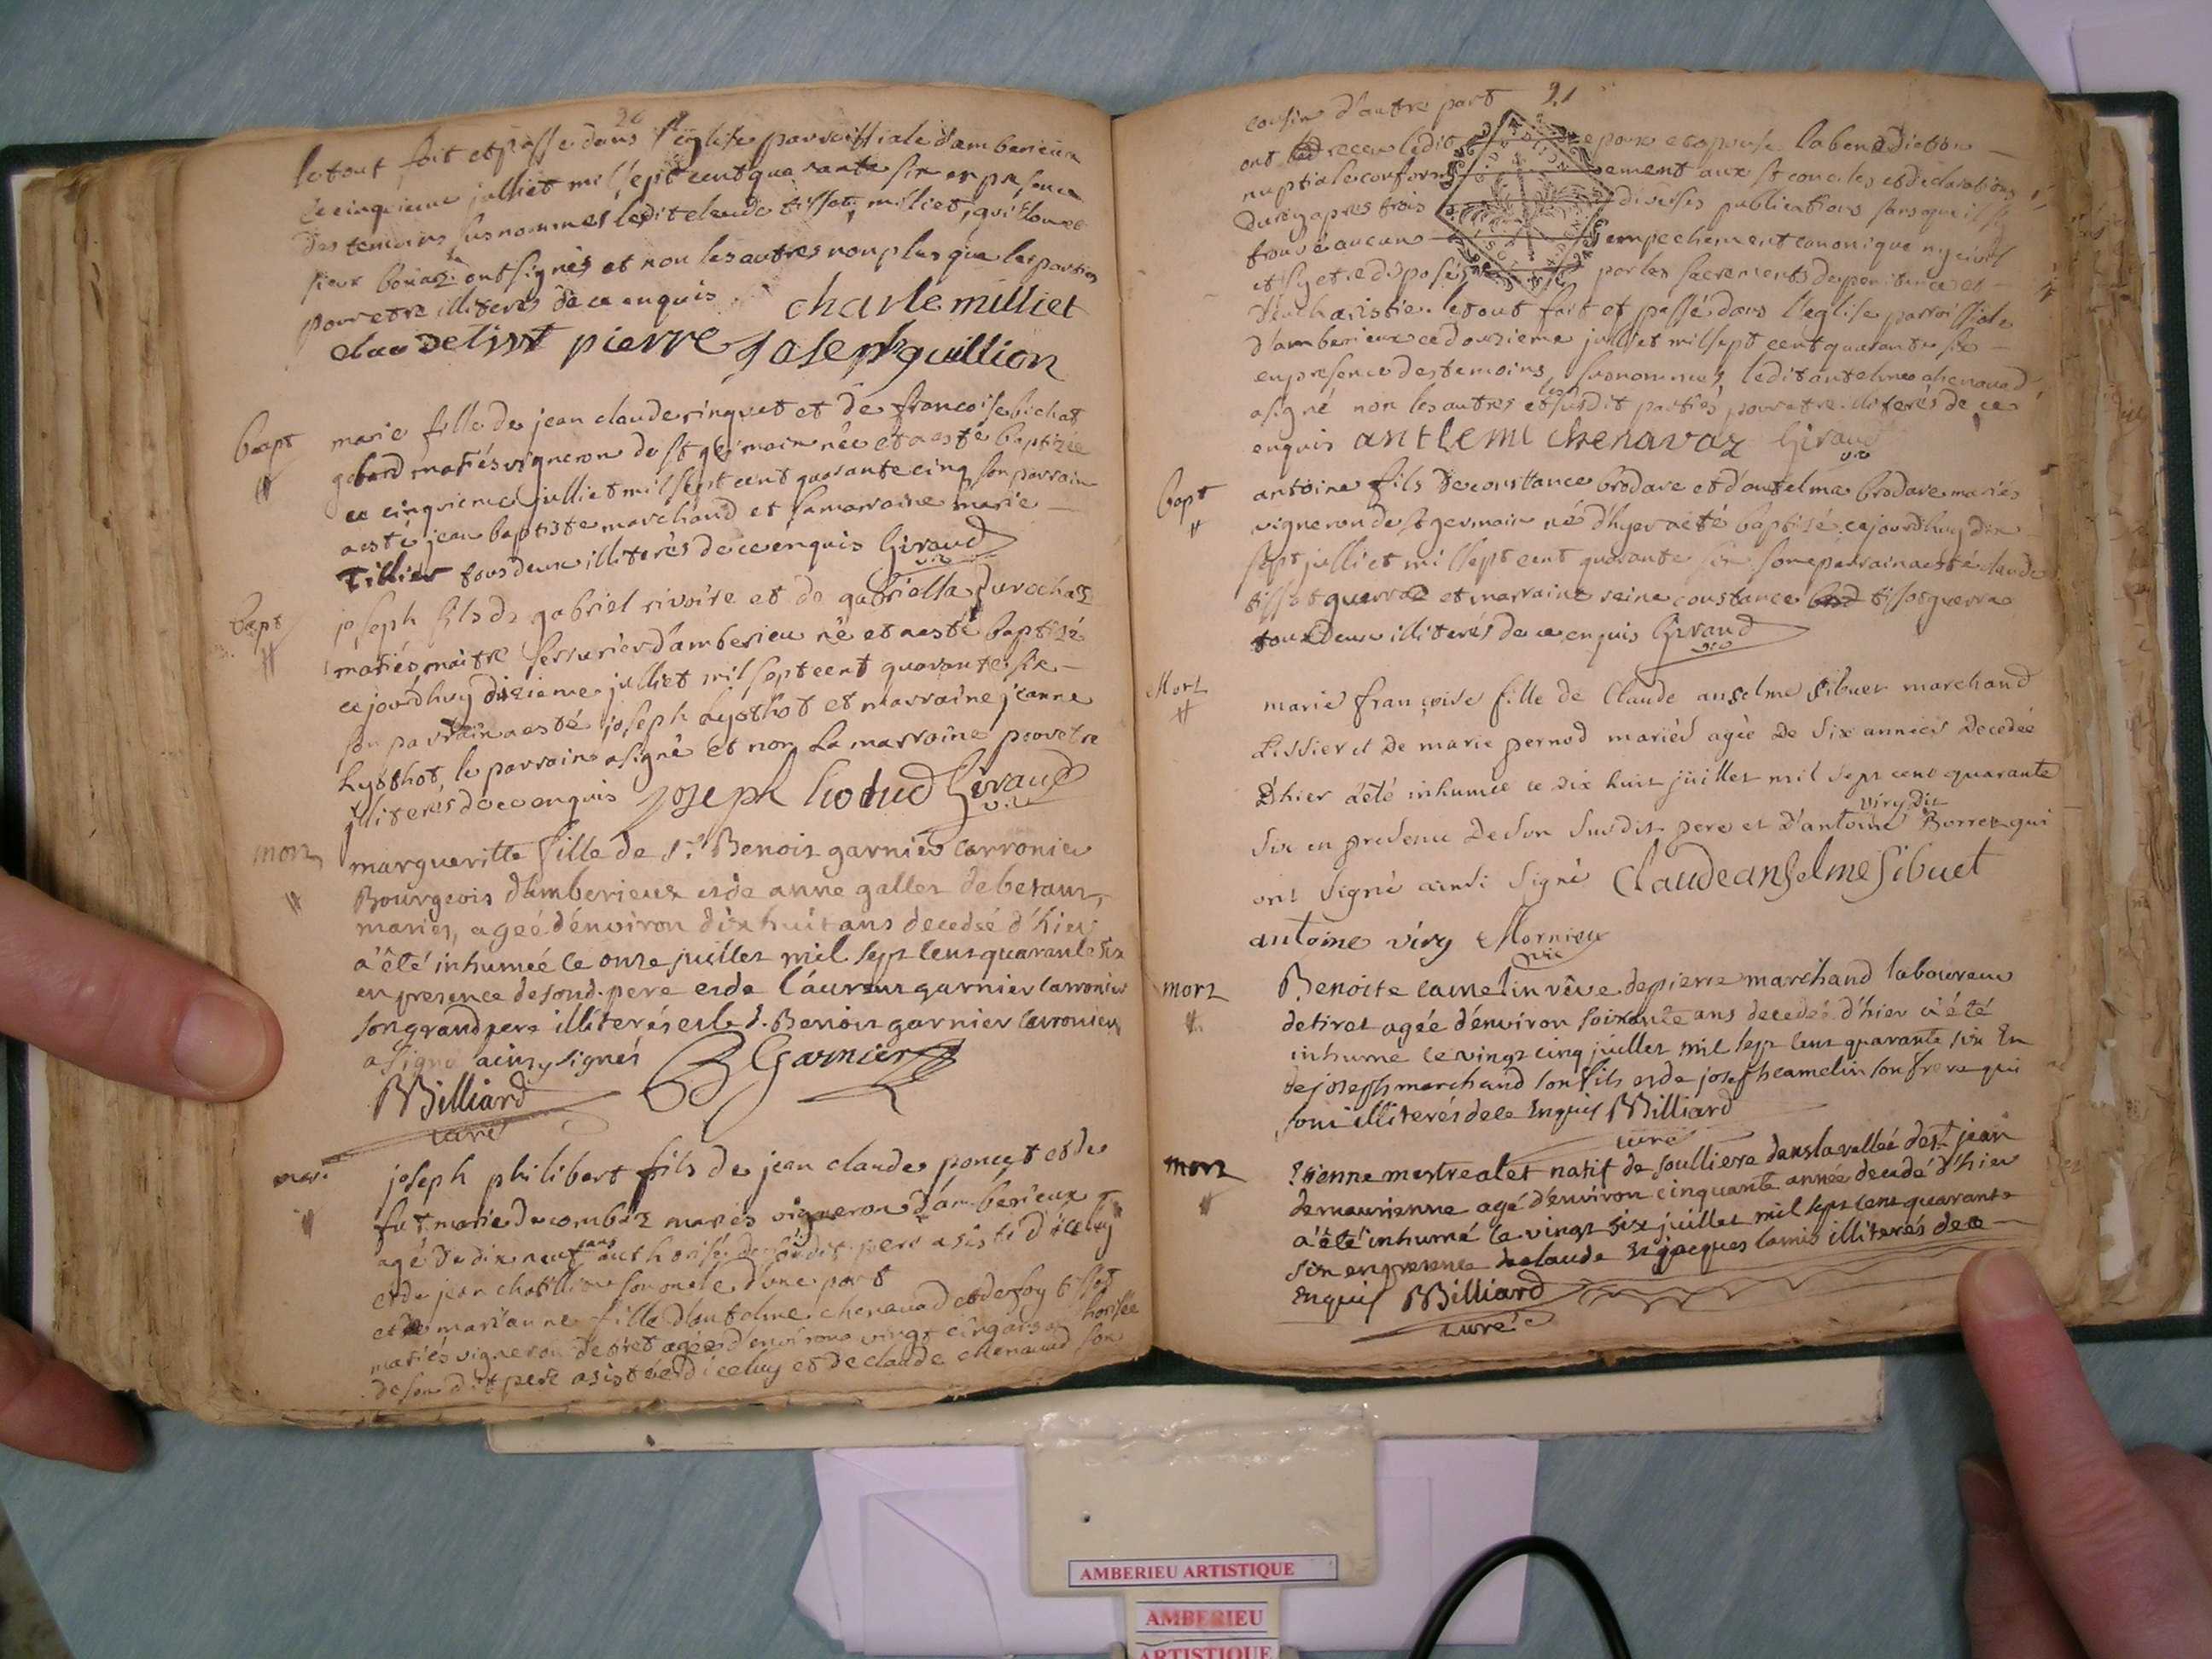 20
le tout fait et passe dans l'eglise parroissiale d'amberieux
ce cinquieme julliet mil sept cent quarante six en presence
des temoins susnommes ledit claude tissot, milliet, guillon et
sieur ont signés et non les autres non plus que les parties
pour etre illiterés de ce enquis charle milliet
claude tissot pierre joseph guillion
bapt
marie fille de jean claude ringuet et de francoise bichat
mariés vigneron de st germain née et a esté baptizée
ce cinquieme julliet mil sept cent quarante cinq son parrain
a esté jean baptiste marchand et sa marraine marie
Tillier tous deux illiterés de ce enquis Giraud
vic
bapt
joseph fils de gabriel rivoire et de gabriella durochat
mariés maitre serrurier d'amberieu né et a esté baptizé
ce jourdhuy dizieme julliet mil sept cent quarante six
son parrain a esté joseph lyothot et marraine jeanne
lyothot, le parrain a signé et non la marraine pour etre
jlliterés de ce enquis joseph liotud Giraud
vic
mort
margueritte fille de sr Benoit garnier carronier
Bourgeois d'amberieux et de anne gallet de betaur
mariés, ageé d'environ dix huit ans decedeé d'hier
a été inhumeé ce onze juillet mil sept cent quarante six
en presence de sond. pere et de laurent garnier carronier
son grand pere illiterés et le s. Benoit garnier carronier
a signé ainsy signés B Garnier
Billiard
curé
mar.
joseph philibert fils de jean claude poncet et de
fut marie decombaz mariés vigneron d'amberieux
agé de dix neuf ans authorisé de son dit pere asisté d'iceluy
et de jean chatillion son oncle d'une part
et marianne fille d'antelme chenavad et de soy tissot
mariés vigneron de tiret ageé d'environ vingt cinq ans authorisée
de son dit pere asisteé d'iceluy et de claude chenavad son
21
cousin d'autre part
ont receu ledit epoux et epouse la benediction
nuptiale conformement aux st conciles et declarations
du roy apres trois diverses publications sans que il se
trouvé aucun empechement canonique ny civil
et s'y etre disposés par les sacrements de penitence et
d'eucharistie. le tout fait et passé dans l'eglise parroissiale
d'amberieux ce douzieme julliet mil sept cent quarante six
en presence des temoins susnommés, ledit antelme chenavad
a signé non les autres et les susdit parties pour etre illiterés de ce
enquis anthelme chenavaz Giraud
vic
bapt
antoine fils de constance brodare et d'antelma brodare mariés
vigneron de st germain né d'hyer a eté baptisé cejourdhuy dix
sept julliet mil sept cent quarante six son parrain a esté claude
tissot guerraz et marraine reine constance tissot guerraz
tous deux illiterés de ce enquis Giraud
vic
Mort
marie françoise fille de Claude anselme sibuet marchand
tissier et De marie pernod mariés ageé De six anneés Decedeé
D'hier a été inhumeé ce dix huit juillet mil sept cent quarante
six en presence De son susdit pere et d'antoine viry dit Borret qui
ont signé ainsi signé Claude anselme sibuet
antoine viry Mornieu
vic
mort
Benoite camelin vêve de pierre marchand laboureur
de tiret agée d'environ soixante ans decedeé d'hier a été
inhumé le vingt cinq juillet mil sept cent quarante six En
de joseph marchand son fils et de joseph camelin son frere qui
sont illiterés de ce Enquis Billiard
curé
mort
Etienne mestrealet natif de soulliere dans la valleé de st jean
de maurienne agé d'environ cinquante année decedé d'hier
a été inhumé le vingt six juillet mil sept cent quarante
six en presence de claude et jacques lamis illiterés de ce
Enquis Billiard
curé
AMBERIEU ARTISTIQUE
AMBERIEU
ARTISTIQUE